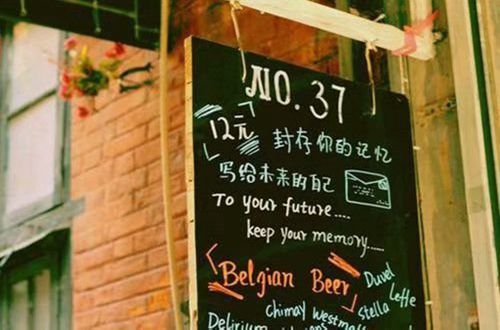 NO. 37
12元 封存你的记忆
写给未来的自己
To your future....
keep your memory.....
Belgian Beer
Duvel
Leffe
Stella
chimay Westmall
Delirium